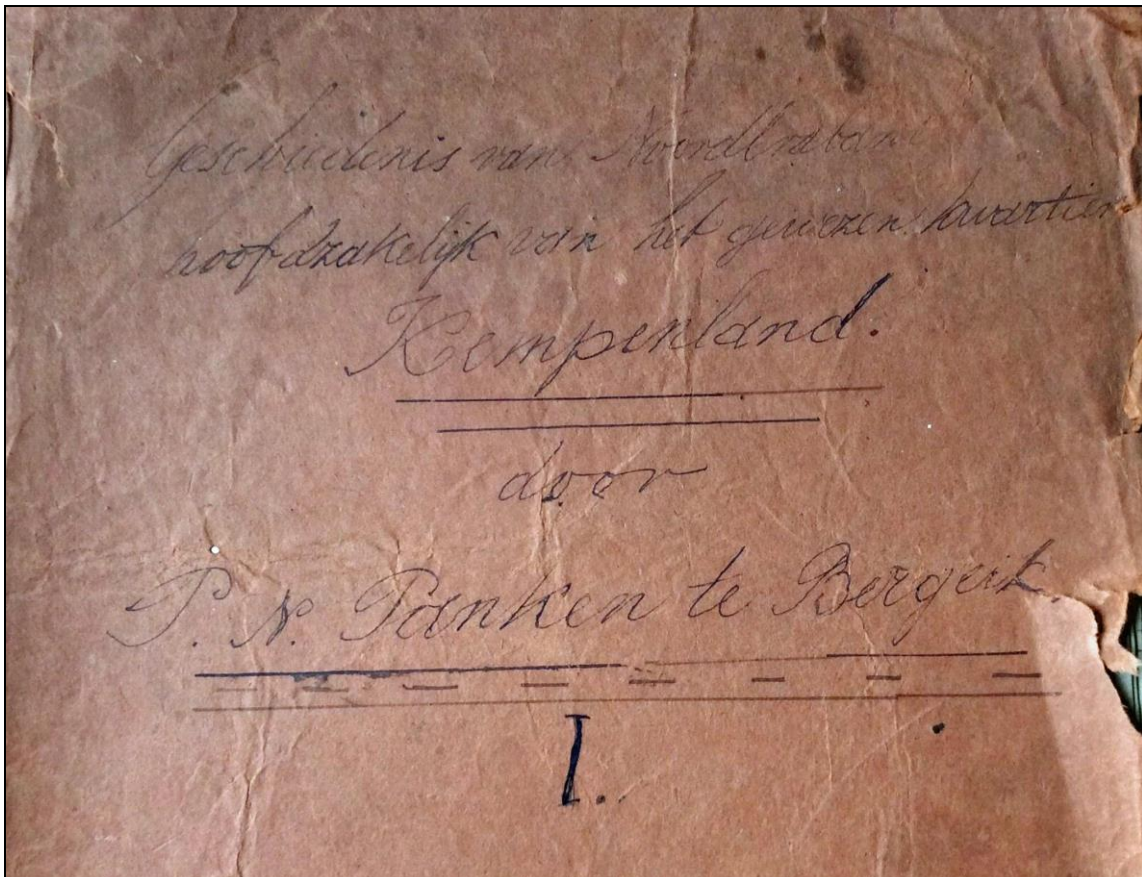 Geschiedenis van Noordbrabant
hoofdzakelijk van het gewezen kwartier
Kempenland.
door
P. N. Panken te Bergeik.
I.